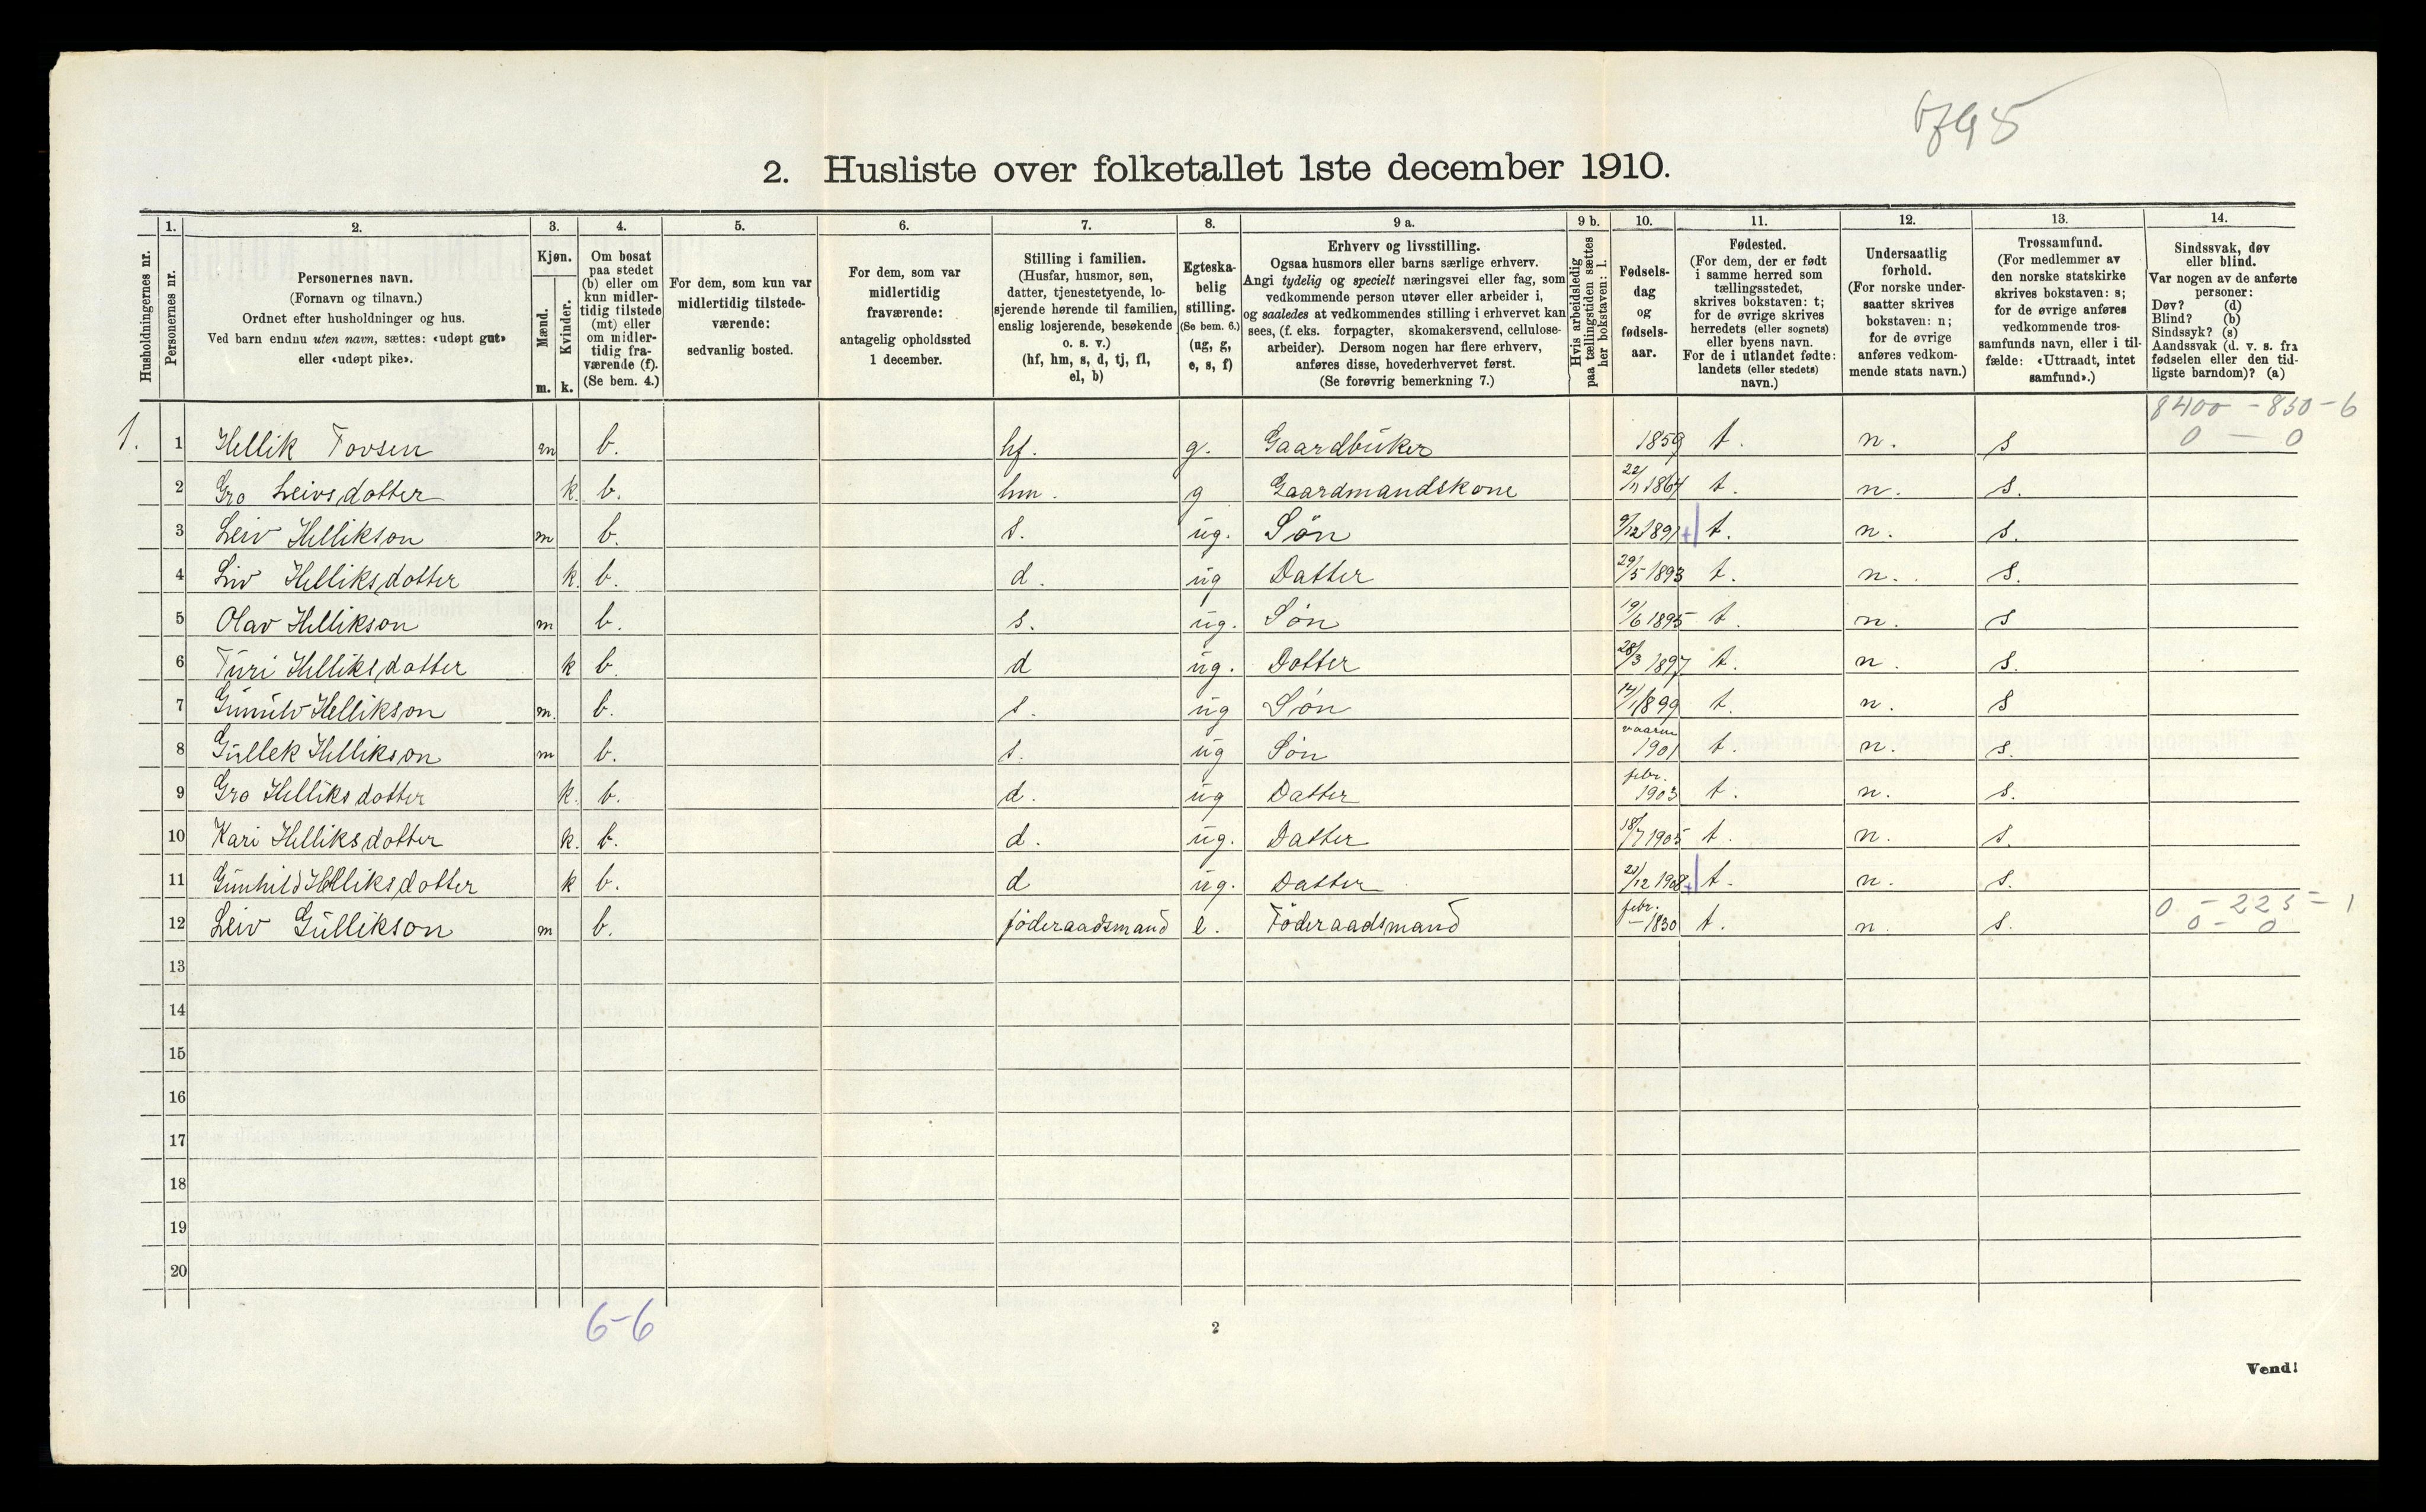 2. Husliste over folketallet 1ste december 1910.
Husholdningernes nr.
1.
Personernes nr.
2.
Personernes navn.
(Fornavn og tilnavn.)
Ordnet efter husholdninger og hus.
Ved barn endnu uten navn, sættes: «udøpt gut»
eller «udøpt pike».
3.
Kjøn.
Mænd.
m.
Kvinder.
k.
4.
Om bosat
paa stedet
(b) eller om
kun midler-
tidig tilstede
(mt) eller
om midler-
tidig fra-
værende (f).
(Se bem. 4.)
5.
For dem, som kun var
midlertidig tilstede-
værende:
sedvanlig bosted.
6.
For dem, som var
midlertidig
fraværende:
antagelig opholdssted
1 december.
7.
Stilling i familien.
(Husfar, husmor, søn,
datter, tjenestetyende, lo-
sjerende hørende til familien,
enslig losjerende, besøkende
o. s. v.)
(hf, hm, s, d, tj, fl,
el, b)
8.
Egteska-
belig
stilling.
(Se bem. 6.)
(ug, g,
e, s, f)
9 a.
Erhverv og livsstilling.
Ogsaa husmors eller barns særlige erhverv.
Angi tydelig og specielt næringsvei eller fag, som
vedkommende person utøver eller arbeider i,
og saaledes at vedkommendes stilling i erhvervet kan
sees, (f. eks. forpagter, skomakersvend, cellulose-
arbeider). Dersom nogen har flere erhverv,
anføres disse, hovederhvervet først.
(Se forøvrig bemerkning 7.)
9 b.
Hvis arbeidsledig
paa tællingstiden sættes
her bokstaven: l.
10.
Fødsels-
dag
og
fødsels-
aar.
11.
Fødested.
(For dem, der er født
i samme herred som
tællingsstedet,
skrives bokstaven: t;
for de øvrige skrives
herredets (eller sognets)
eller byens navn.
For de i utlandet fødte:
landets (eller stedets)
navn.)
12.
Undersaatlig
forhold.
(For norske under-
saatter skrives
bokstaven: n;
for de øvrige
anføres vedkom-
mende stats navn.)
13.
Trossamfund.
(For medlemmer av
den norske statskirke
skrives bokstaven: s;
for de øvrige anføres
vedkommende tros-
samfunds navn, eller i til-
fælde: «Uttraadt, intet
samfund».)
14.
Sindssvak, døv
eller blind.
Var nogen av de anførte
personer:
Døv? (d)
Blind? (b)
Sindssyk? (s)
Aandssvak (d. v. s. fra
fødselen eller den tid-
ligste barndom)? (a)
8400 - 830 - 6
1. 1 Hellik Tovsen m b. hf. g. Gaardbruker 1859 t. n. s 0 — 0
2 Gro Leivsdotter k. b. hm. g Gaardmandskone 22/11 1864 t. n. s.
3 Leiv Hellikson m b. s. ug. Søn 9/12 1891 t. n. s.
4 Liv Helliksdotter k. b. d. ug Datter 29/5 1893 t. n. s.
5 Olav Hellikson m b. s. ug. Søn 19/6 1895 t. n. s
6 Turi Helliksdotter k b. d ug. Dotter 28/3 1897 t. n. s.
7 Gunulv Hellikson m. b. s. ug Søn 14/1 1899 t. n. s
8 Gullek Hellikson m b. s. ug Søn vaaren 1901 t. n. s.
9 Gro Helliksdotter k. b. d. ug Datter febr. 1903 t. n. s.
10 Kari Helliksdotter k. b. d. ug. Datter 18/7 1905 t. n. s.
11 Gunhild Helliksdotter k b. d ug. Datter 1908 t. n. s.
0 - 225 - 1
12 Leiv Gullikson m b. föderaadsmand e. Föderaadsmand febr. 1830 t. n. s. 0 - 0
13
14
15
16
17
18
19
20
6-6
2
Vend!